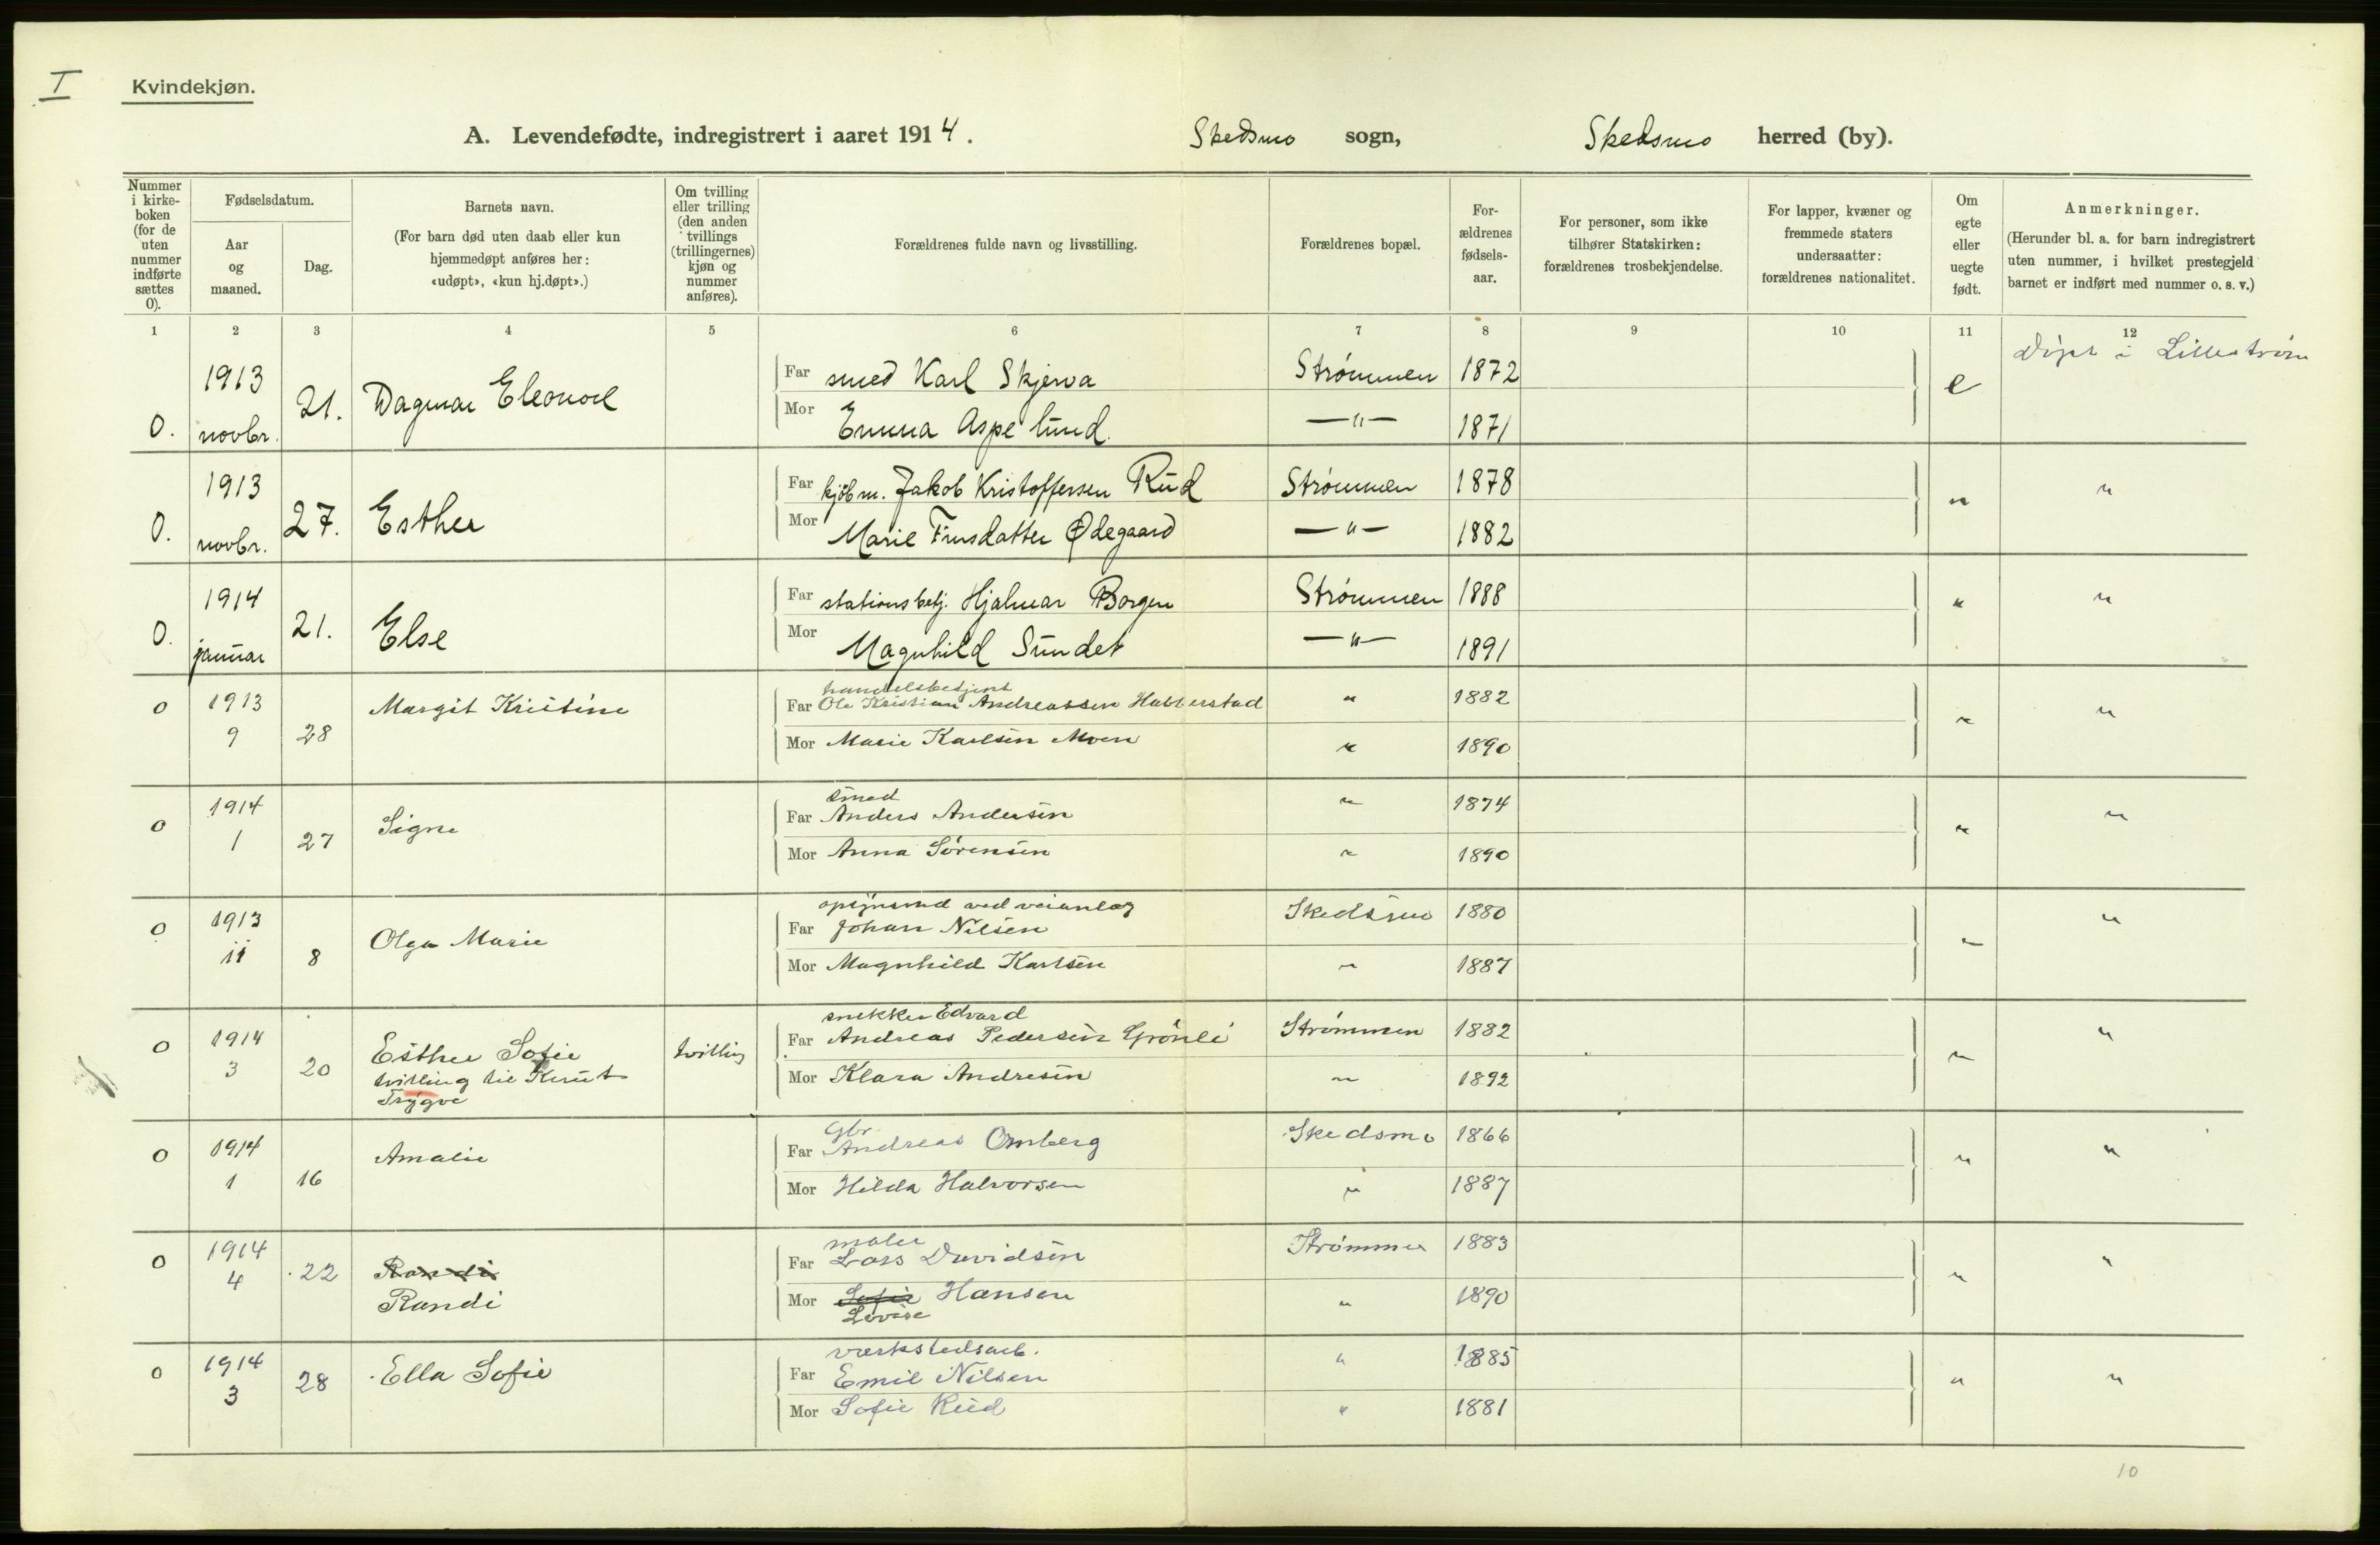 I
Kvindekjøn.
A. Levendefødte, indregistrert i aaret 1914. Skedsmo sogn, Skedsmo herred (by).
Nummer i kirke-boken (for de uten nummer indførte sættes 0).
Fødselsdatum.
Aar og maaned.
Dag.
Barnets navn.
(For barn død uten daab eller kun hjemmedøpt anføres her: «udøpt», «kun hj.døpt».)
Om tvilling eller trilling (den anden tvillings (trillingernes) kjøn og nummer anføres).
Forældrenes fulde navn og livsstilling.
Forældrenes bopæl.
For-ældrenes fødsels-aar.
For personer, som ikke tilhører Statskirken: forældrenes trosbekjendelse.
For lapper, kvæner og fremmede staters undersaatter: forældrenes nationalitet.
Om egte eller uegte født.
Anmerkninger.
(Herunder bl. a. for barn indregistrert uten nummer, i hvilket prestegjeld barnet er indført med nummer o. s. v.)
1 2 3 4 5 6 7 8 9 10 11 12
0. 1913 novbr. 21. Dagmar Eleonore
Far smed Karl Skjerva Strømmen 1872 e Døpt i Lillestrøm
Mor Emma Aspelund. —"— 1871
0. 1913 novbr. 27. Esther
Far kjøbm. Jakob Kristoffersen Rud Strømmen 1878 " "
Mor Marie Finsdatter Ødegaard —"— 1882
0. 1914 januar 21. Else
Far stationsbetj. Hjalmar Borgen Strømmen 1888 " "
Mor Magnhild Sundet —"— 1891
0 1913 9 28 Margit Kristine
handelsbetjent
Far Ole Kristian Andreassen Habberstad " 1882 " "
Mor Marie Karlsen Moen " 1890
0 1914 1 27 Signe
smed
Far Anders Andersen " 1874 " "
Mor Anna Sørensen " 1890
0 1913 11 8 Olga Marie
opsynsmd ved veianlæg
Far Johan Nilsen Skedsmo 1880 " "
Mor Magnhild Karlsen " 1887
0 1914 3 20 Esther Sofie tvilling
tvilling til Knut
Trygve
snekker Edvard
Far Andreas Pedersen Grønli Strømmen 1882 " "
Mor Klara Andresen " 1892
0 1914 1 16 Amalie
Gbr.
Far Andreas Omberg Skedsmo 1866 " "
Mor Hilda Halvorsen " 1887
0 1914 4 22 Randi
Randi
maler
Far Lars Davidsen Strømmen 1883 " "
Mor Sofie Hansen " 1890
Lovise
0 1914 3 28 Ella Sofie
værkstedsarb.
Far Emil Nilsen " 1885 " "
Mor Sofie Rud " 1881
10